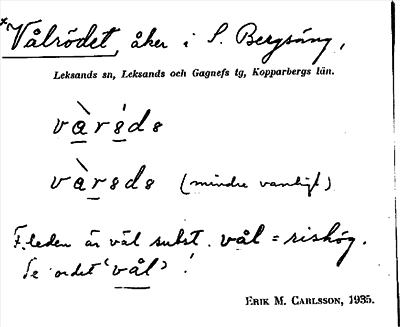 *Vålrödet, åker i S. Bergsäng,
Leksands sn, Leksands och Gagnefs tg, Kopparbergs län.
vàrśds
vàrsds (mindre vanligt)
F.leden är väl subst. vål = rishög.
Se ordet 'vål' !
ERIK M. CARLSSON, 1935.